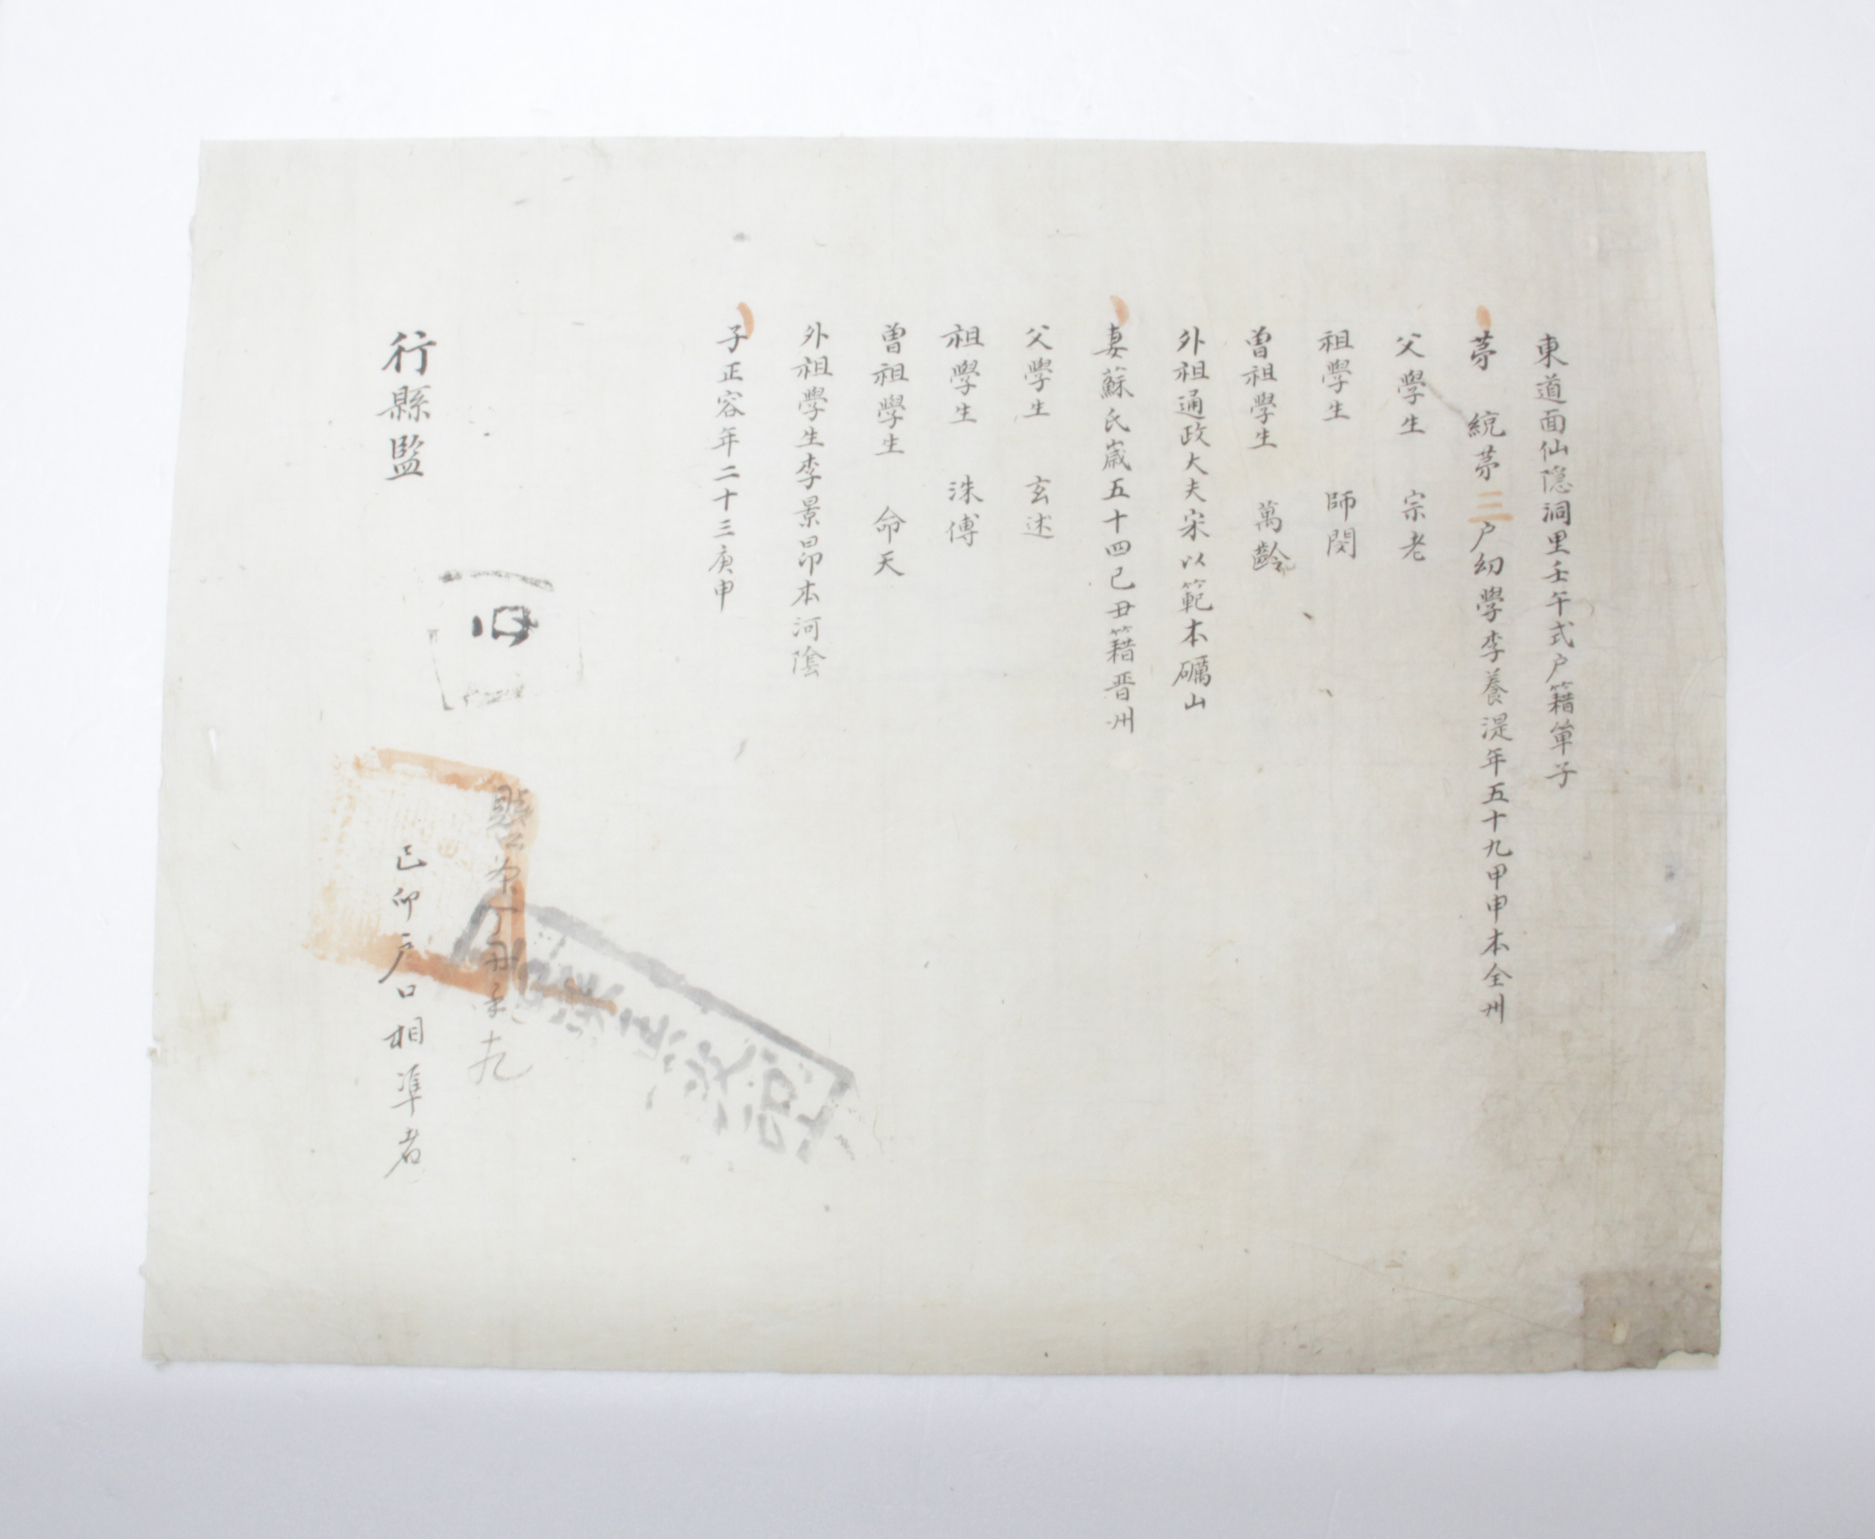 東道面仙隱洞里壬午式户籍單子
苐 統苐三户幼學李養湜年五十九甲申本全州
父學生 宗老
祖學生 師閔
曽祖學生 萬齡
外祖通政大夫宋以範本礪山
妻蘇氏歲五十四己丑籍晋州
父學生 玄述
祖學生 洙傅
曽祖學生 命天
外祖學生李景昴本河陰
子正容年二十三庚申
行縣監
己卯户口相凖者